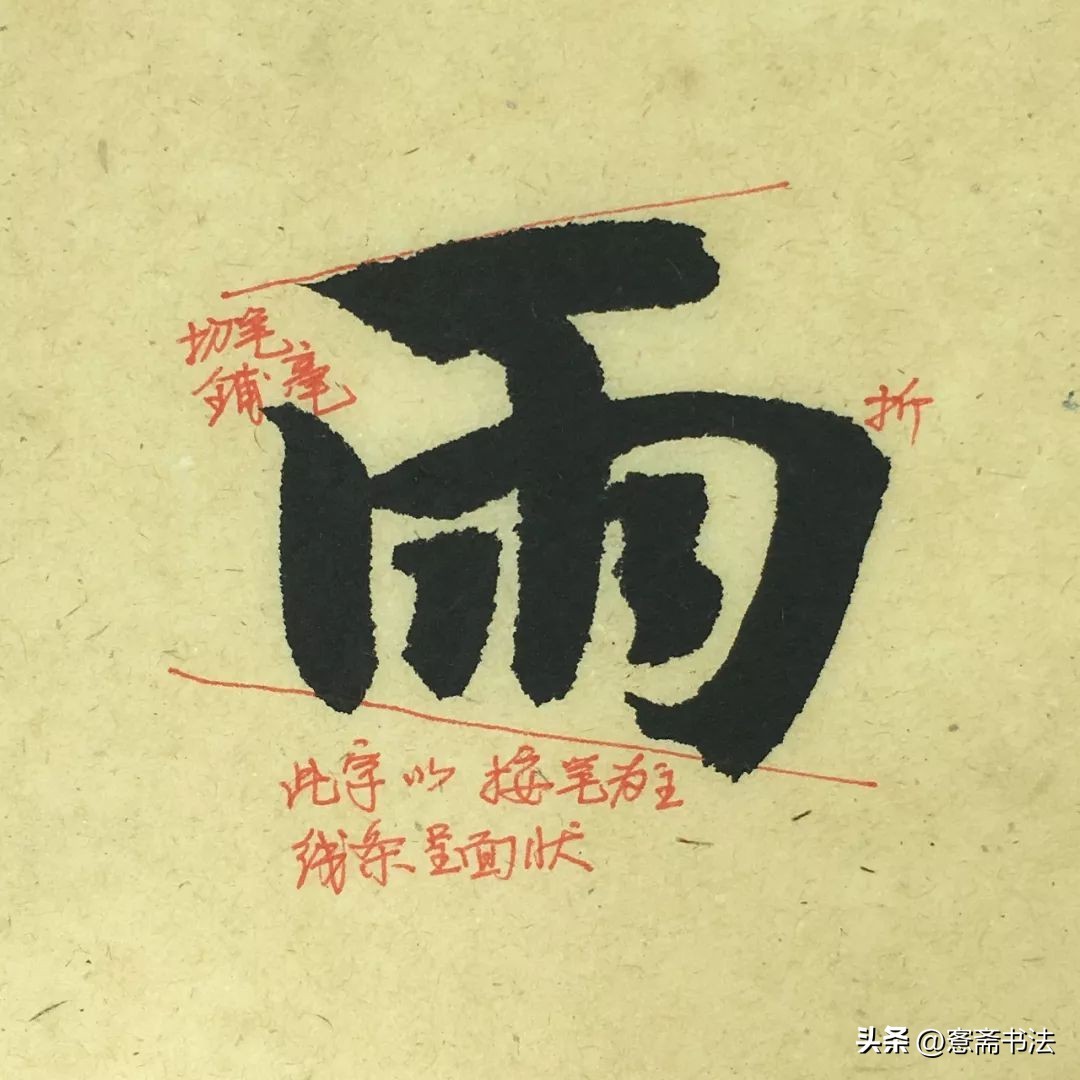 雨
切笔
鋪毫
折
此字以 接笔为主
线条呈面状
头条 @愙斋书法